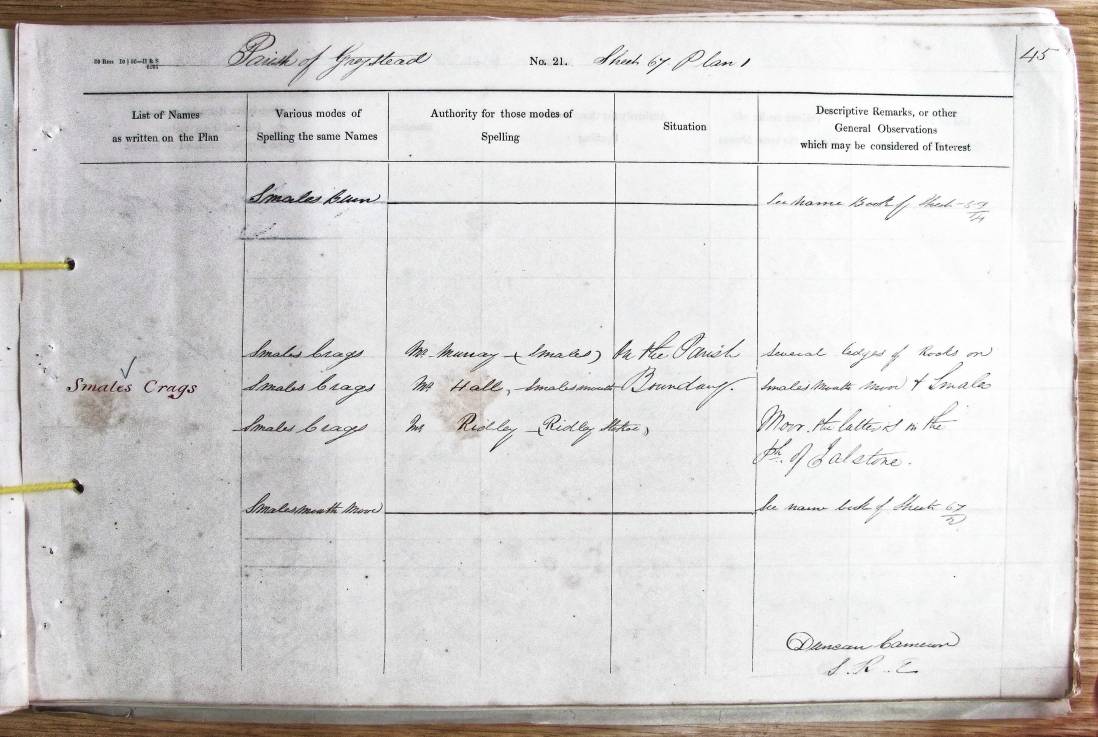 Parish of Greystead No. 21. Sheet 67 Plan 1 45
List of Names
as written on the Plan
Various modes of
Spelling the same Names
Authority for those modes of
Spelling
Situation
Descriptive Remarks, or other
General Observations
which may be considered of Interest
Smales See Name Book of Sheet
Smales Crags Mr. Murray (Smales) On the Parish Several ledges of Rocks on
Smales Crags Smales Crags Mr. Hall, Smalesmouth Boundary. Smalesmouth Moor & Smales
Smales Crags Mr Ridley (Ridley Stokoe) Moor. the latter is in the
ph. of Falstone.
Smalesmouth Moor See name book of Sheet 67/2
Duncan Cameron
S. R. E